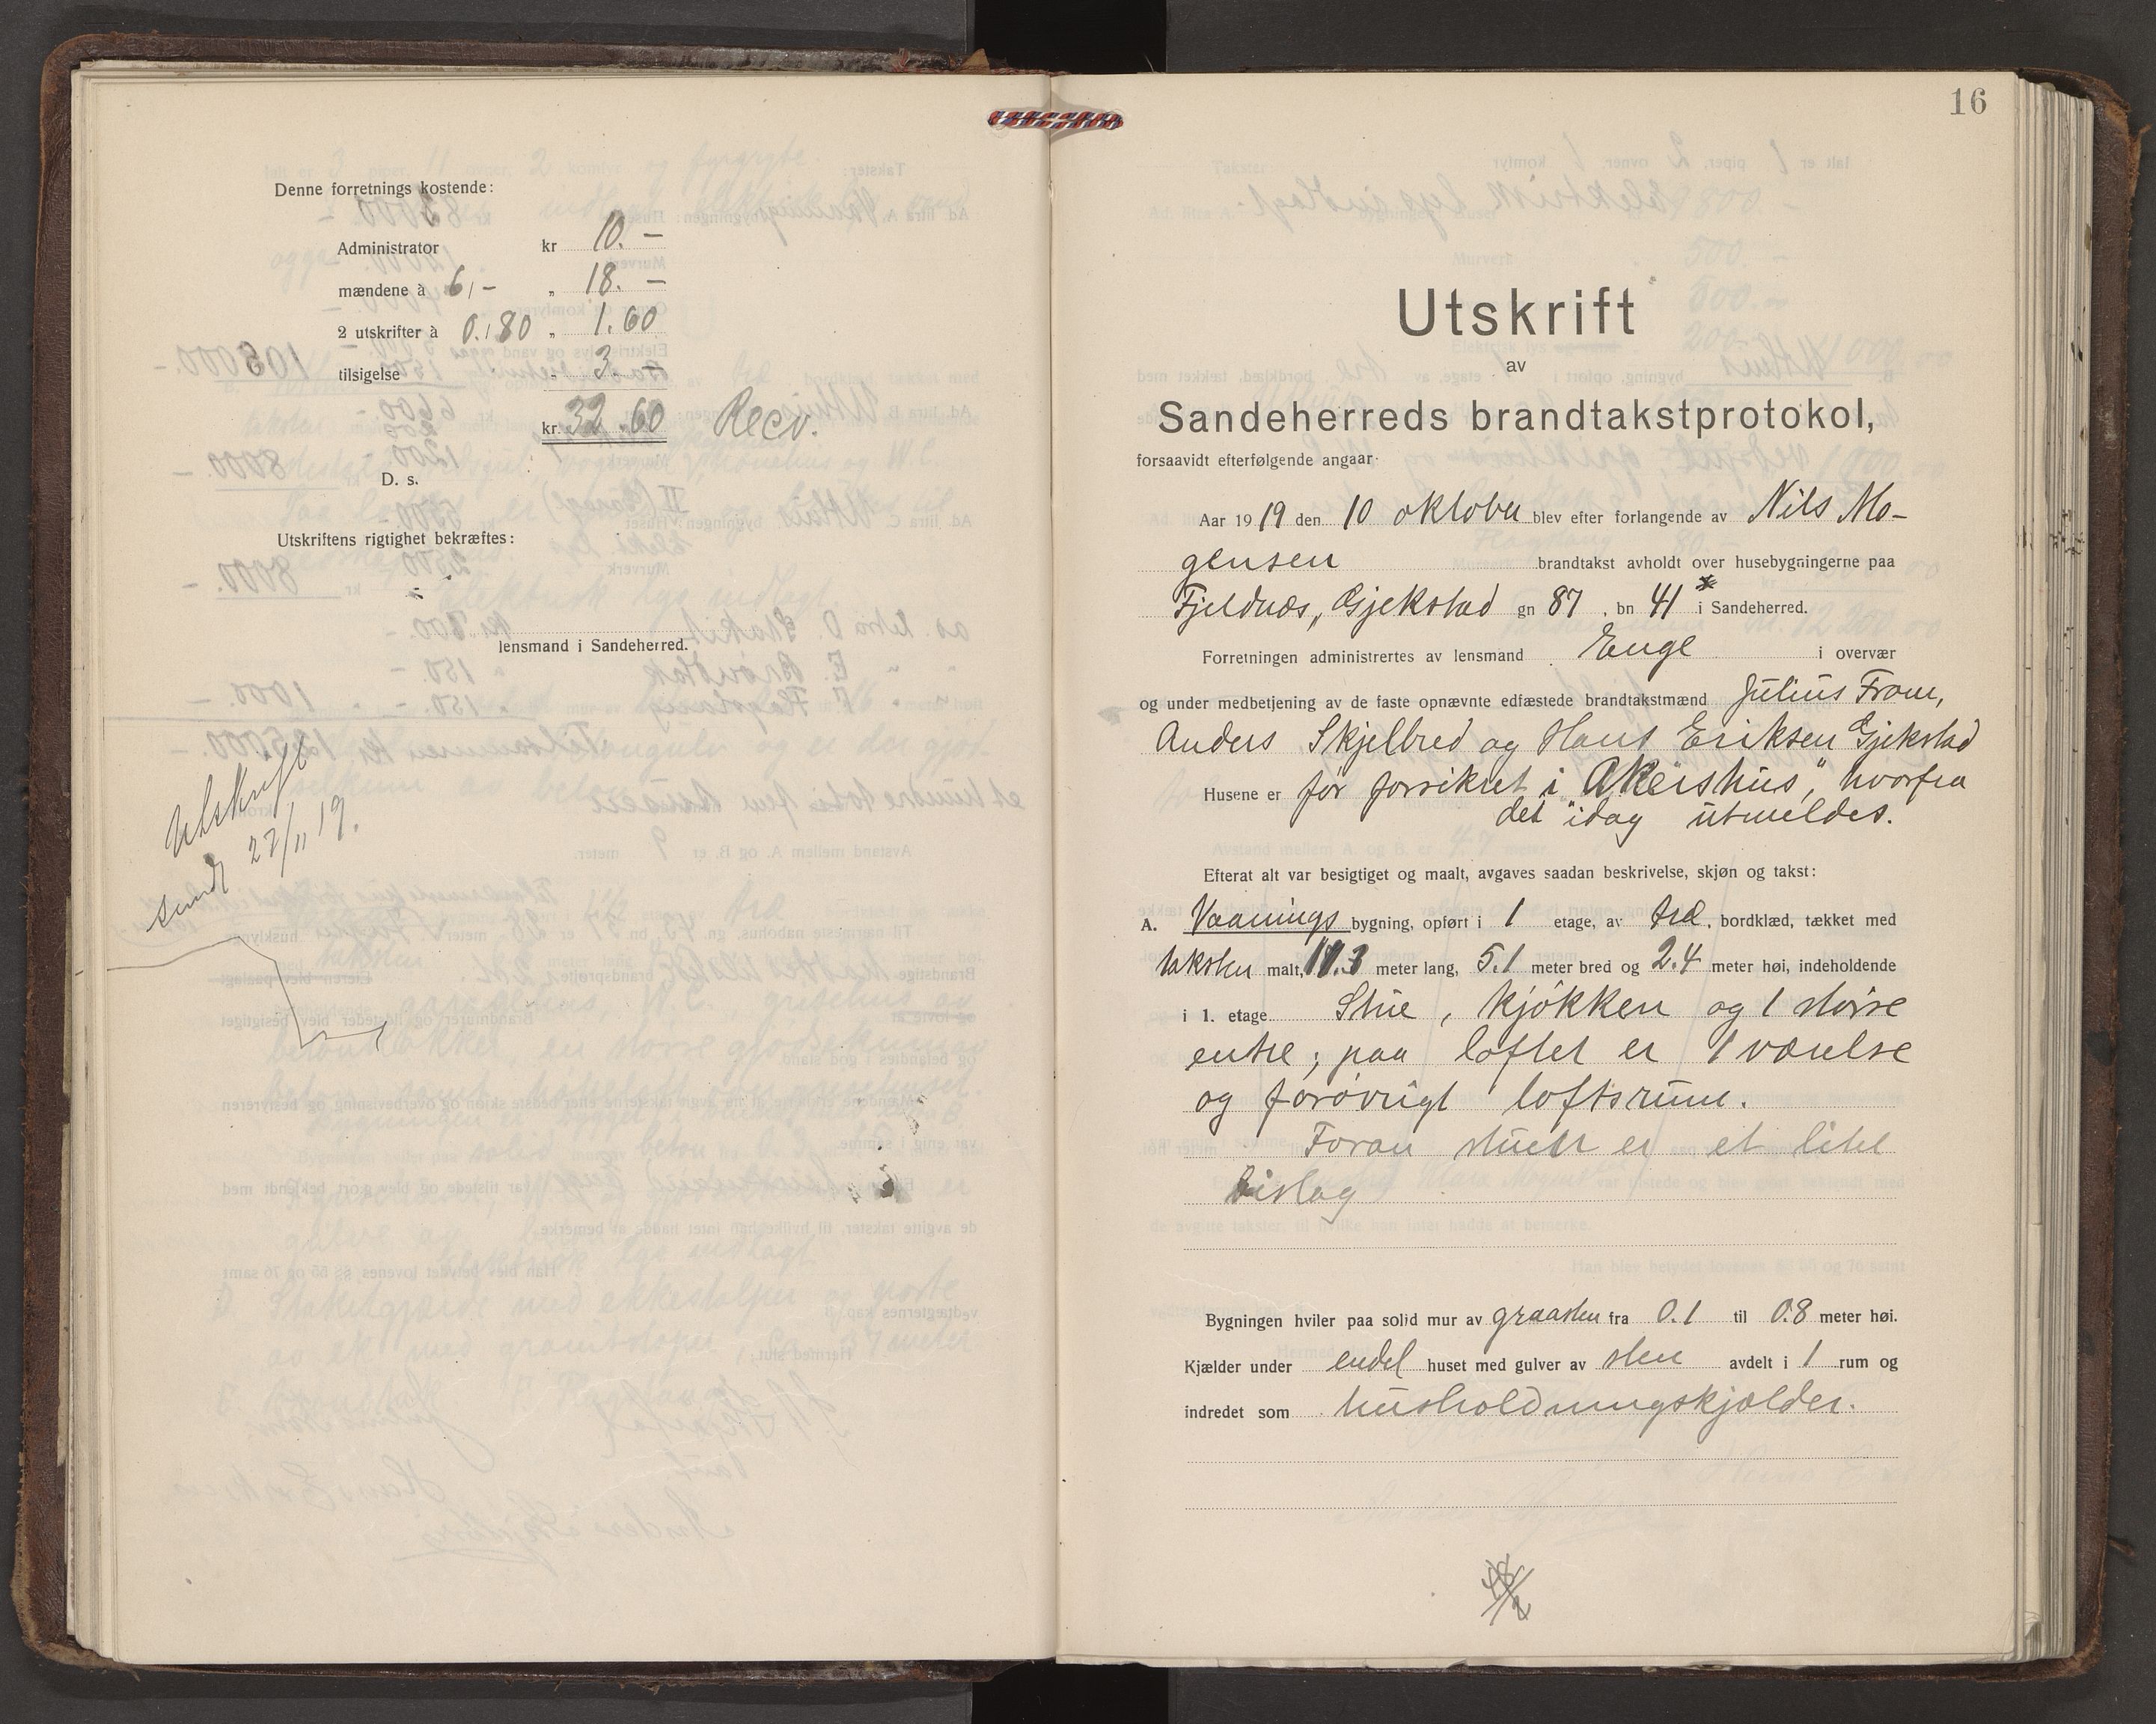 Denne forretnings kostende:
Administrator kr 10. —
mændene à 6,– „ 18. —
2 utskrifter à 0.80 „ 1.60
tilsigelse „ 3. —
kr. 32.60 Recv.
D. s.
Utskriftens rigtighet bekræftes:
lensmand i Sandeherred.
Utskrift
sendt 27/11 19.
16
Utskrift
av
Sandeherreds brandtakstprotokol,
forsaavidt efterfølgende angaar
Aar 1919 den 10 oktober blev efter forlangende av Nils Mo-
gensen brandtakst avholdt over husebygningerne paa
Fjeldnæs, Gjekstad gn 87, bn 41 i Sandeherred.
Forretningen administrertes av lensmand Enge i overvær
og under medbetjening av de faste opnævnte edfæstede brandtakstmænd Julius Fram,
Anders Skjelbred og Hans Eriksen Gjekstad
Husene er før forsikret i „Akershus", hvorfra
det idag utmeldes.
Efterat alt var besigtiget og maalt, avgaves saadan beskrivelse, skjøn og takst:
A. Vaanings bygning, opført i 1 etage, av træ, bordklæd, tækket med
taksten malt, 11.3 meter lang, 5.1 meter bred og 2.4 meter høi, indeholdende
i 1. etage Stue, kjøkken og 1 større
entre; paa loftet er 1 værelse
og forøvrigt loftsrum.
Foran stuen er et litet
bislag
Bygningen hviler paa solid mur av graasten fra 0.1 til 0.8 meter høi.
Kjælder under endel huset med gulver av sten avdelt i 1 rum og
indredet som husholdningskjælder.